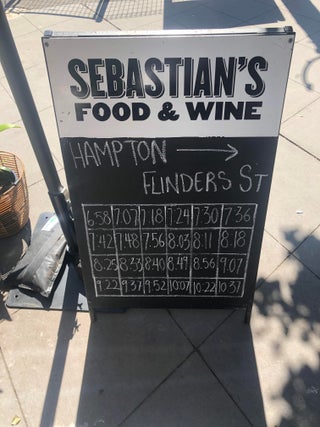 SEBASTIAN'S
FOOD & WINE
HAMPTON →
FLINDERS ST
6.58 7.07 7.18 7.24 7.30 7.36
7.42 7.48 7.56 8.03 8.11 8.18
8.25 8.33 8.40 8.49 8.56 9.07
9.22 9.37 9.52 10.07 10.22 10.37